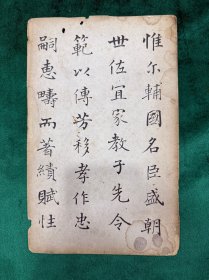 惟尔輔國名臣盛朝
世佐宜家教子先令
範以傳芳移孝作忠
嗣惠疇而著績賦性